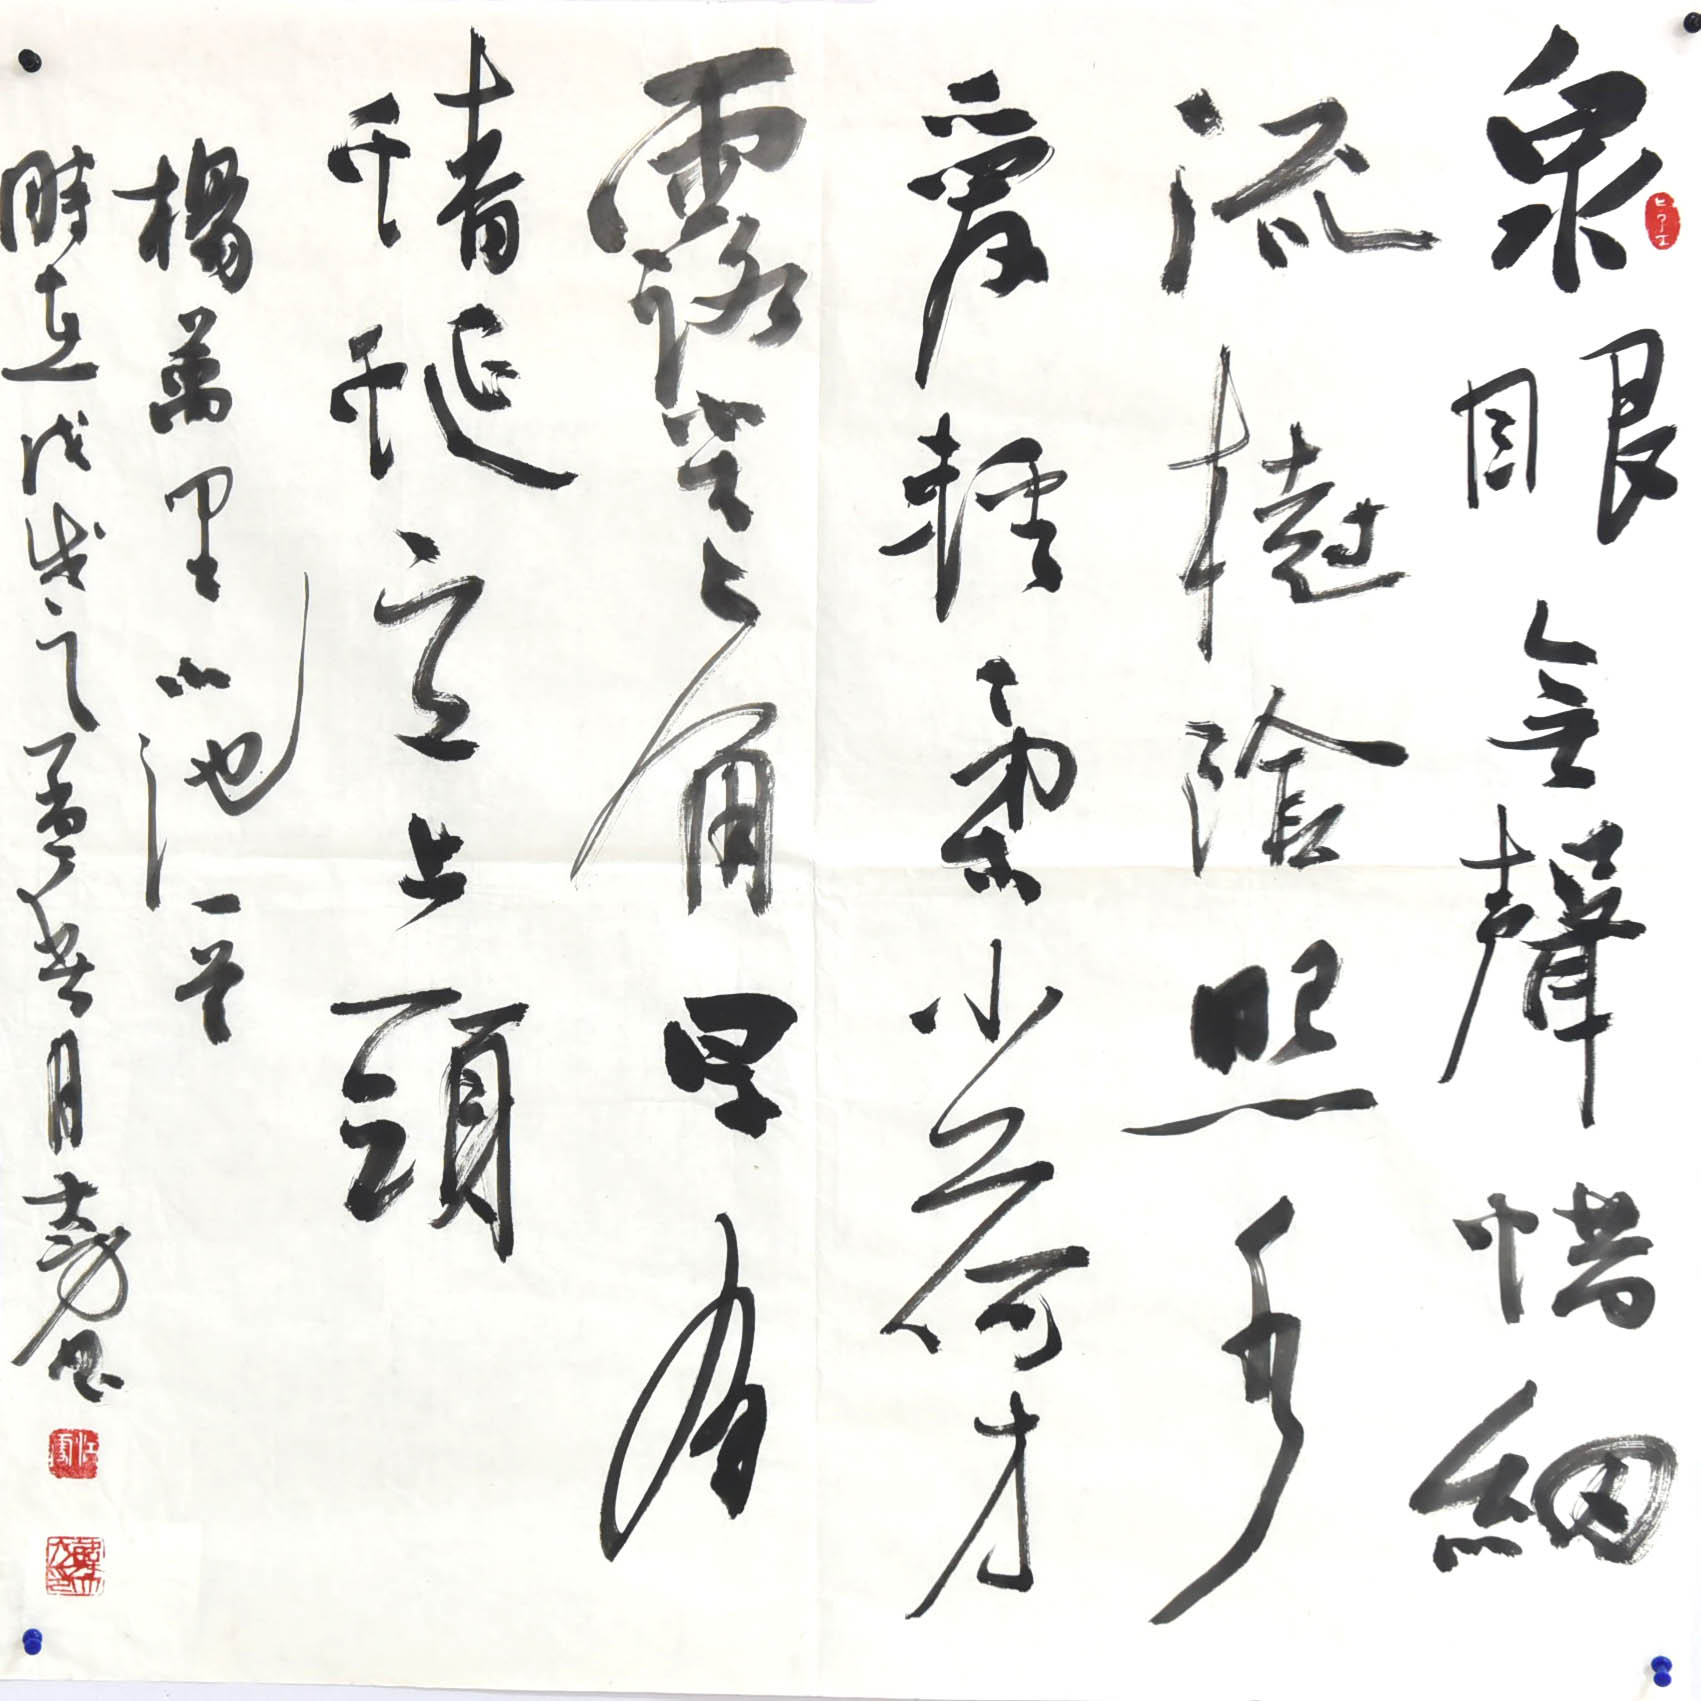 泉眼無聲惜細
流樹陰照水
愛晴柔小荷才
露尖尖角早有
蜻蜓立上頭
楊萬里小池一首
時在戊戌之孟春月